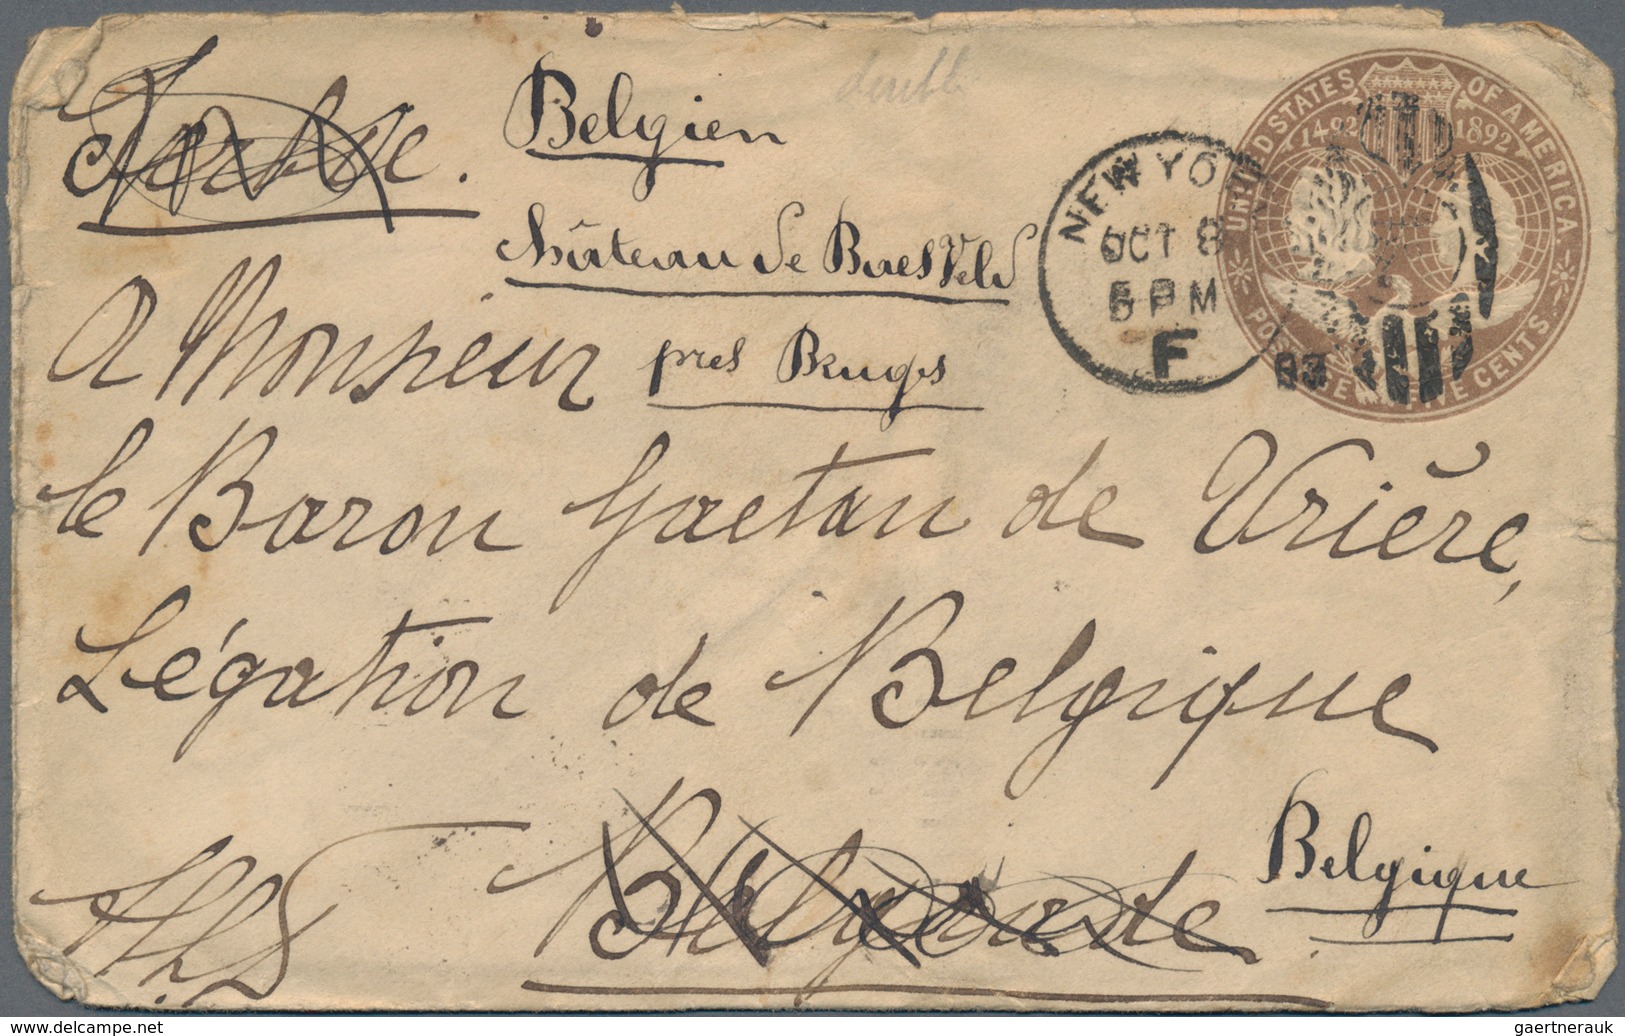 Serbie.
Belgien
Château de Baesveld
près Bruges
A Monsieur
le Baron Gaetan de Vrière,
Légation de Belgique
Belgrade
Belgique
NEW YO
OCT 8
5 PM
F
93
UNITED STATES OF AMERICA
1492 1892
POSTAGE FIVE CENTS.
delcampe.net
gaertnerauk